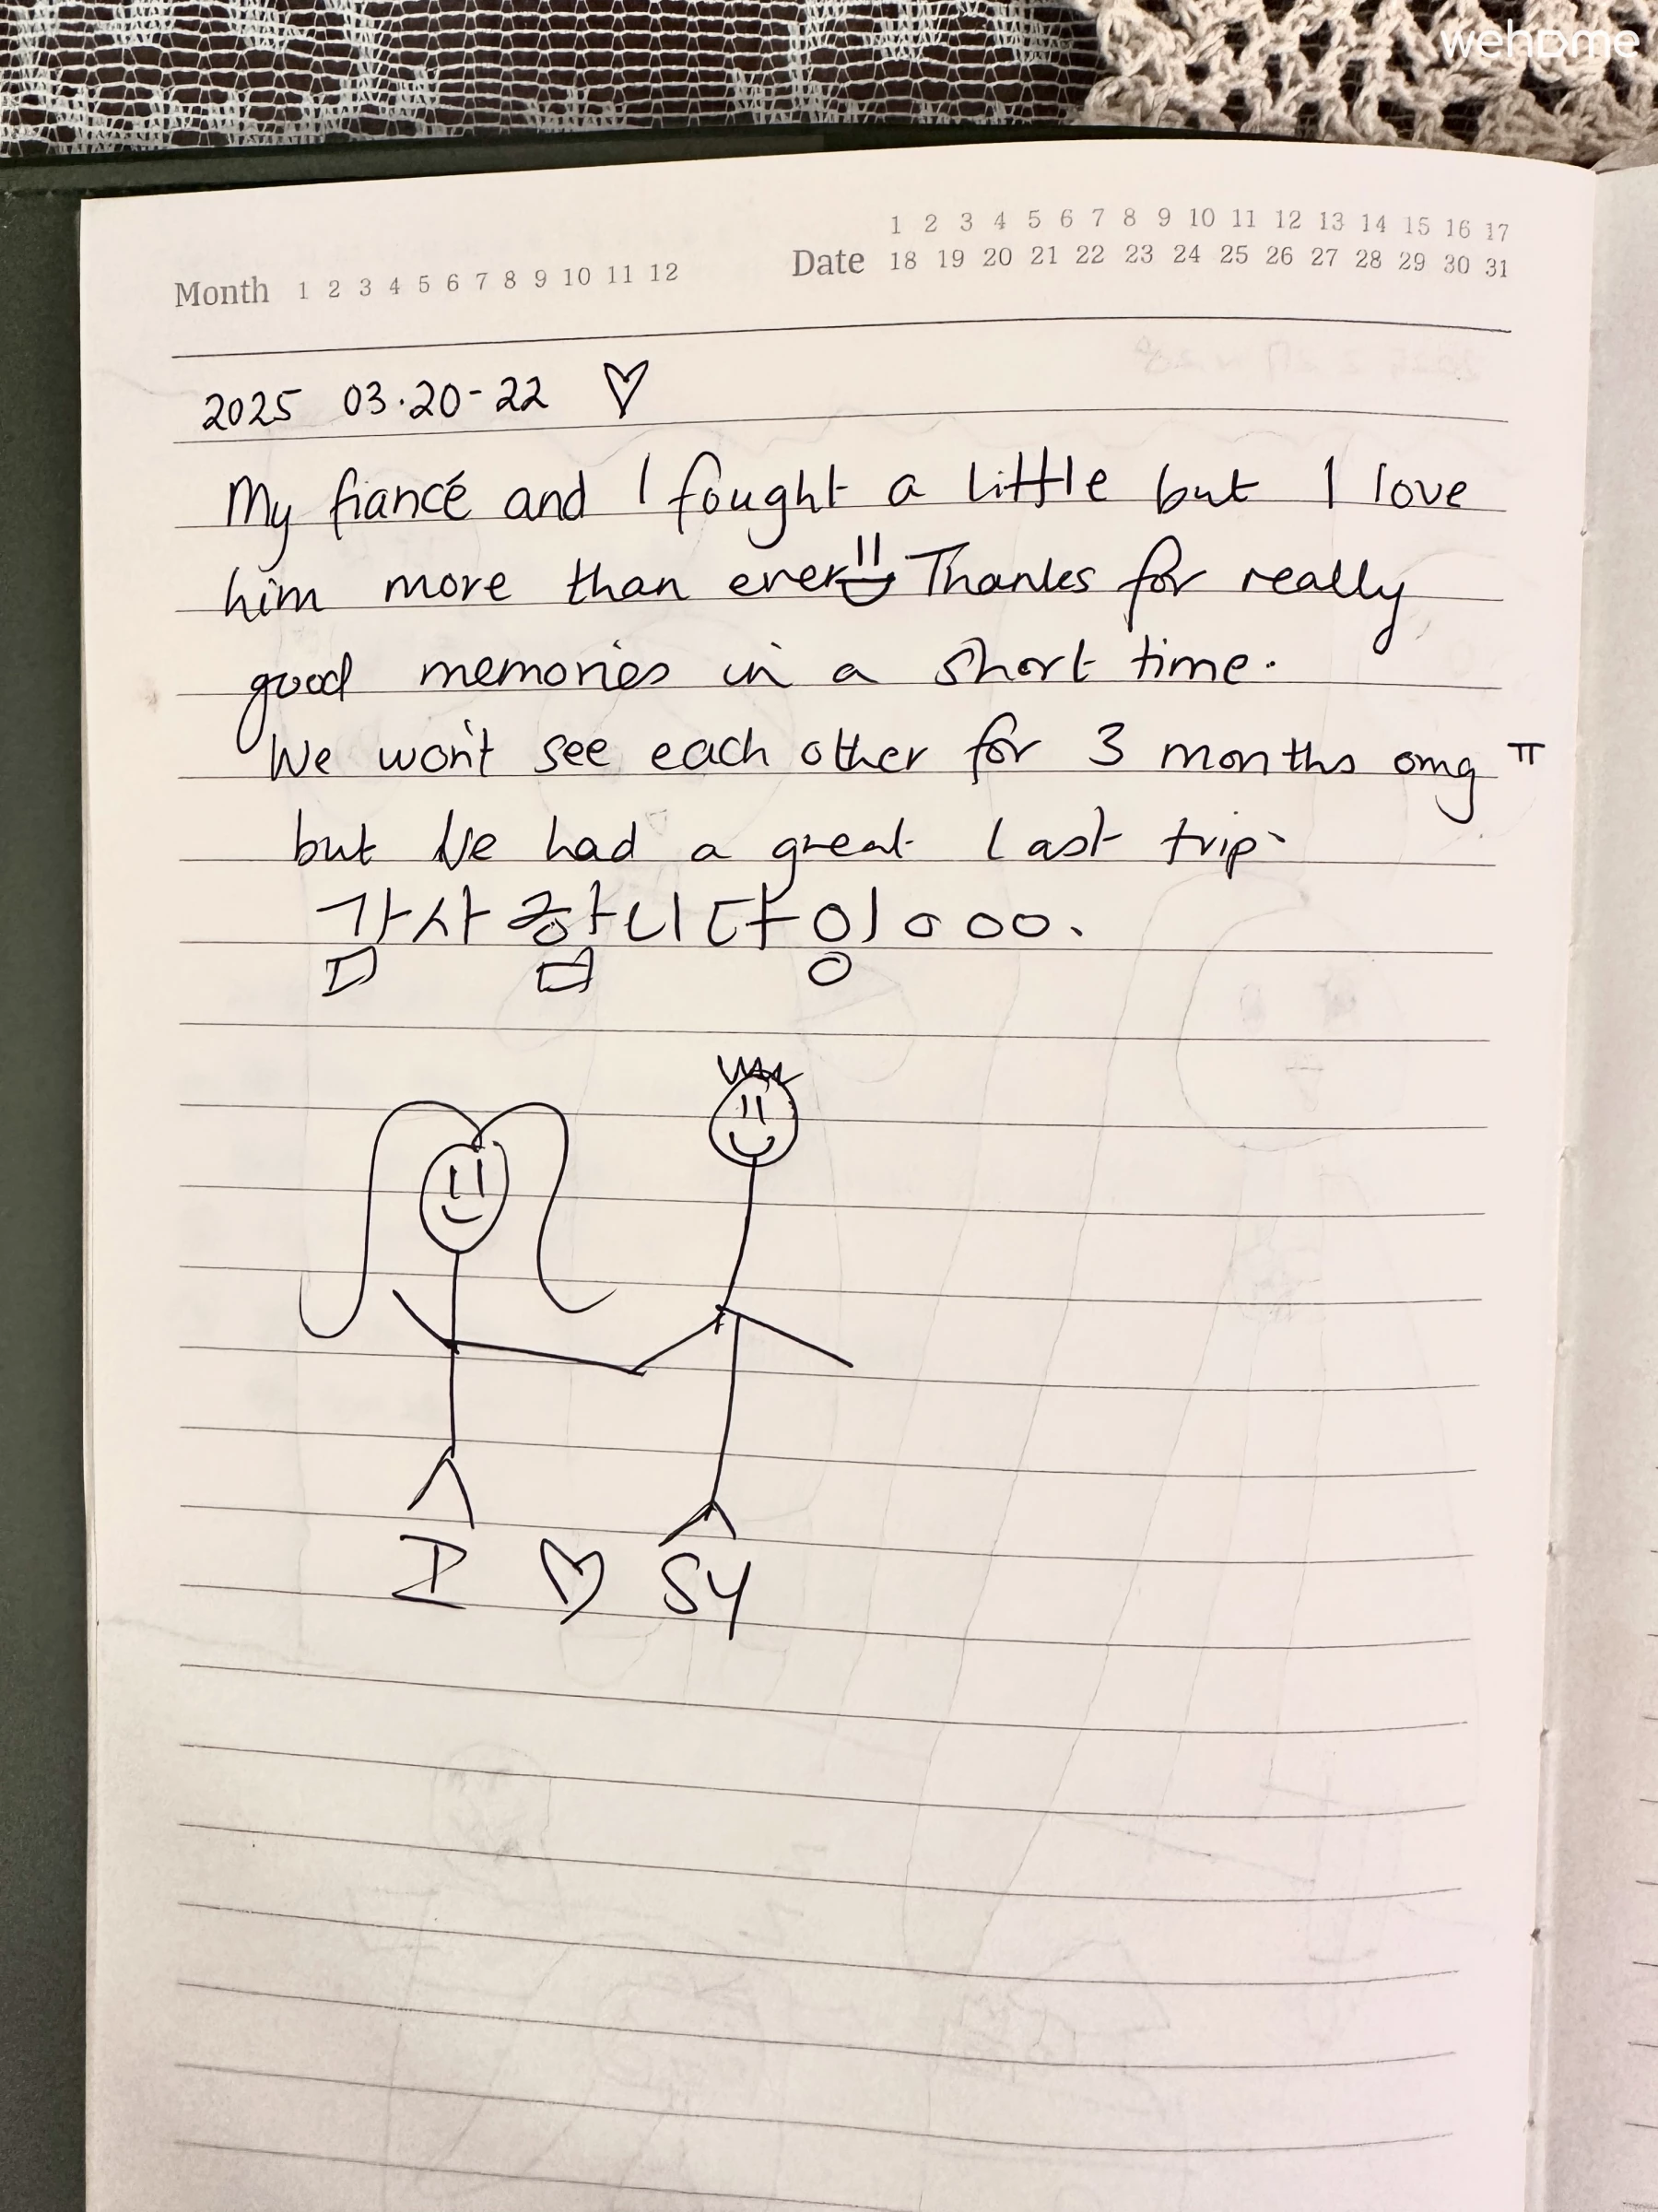 wehome
1 2 3 4 5 6 7 8 9 10 11 12 13 14 15 16 17
Month 1 2 3 4 5 6 7 8 9 10 11 12 Date 18 19 20 21 22 23 24 25 26 27 28 29 30 31
2025 03.20-22 ♡
My fiancé and I fought a little but I love
him more than ever Thanks for really
good memories in a short time.
We won't see each other for 3 months omg ㅠ
but We had a great last trip.
감사합니다잉ㅇㅇㅇ.
I ♡ SY